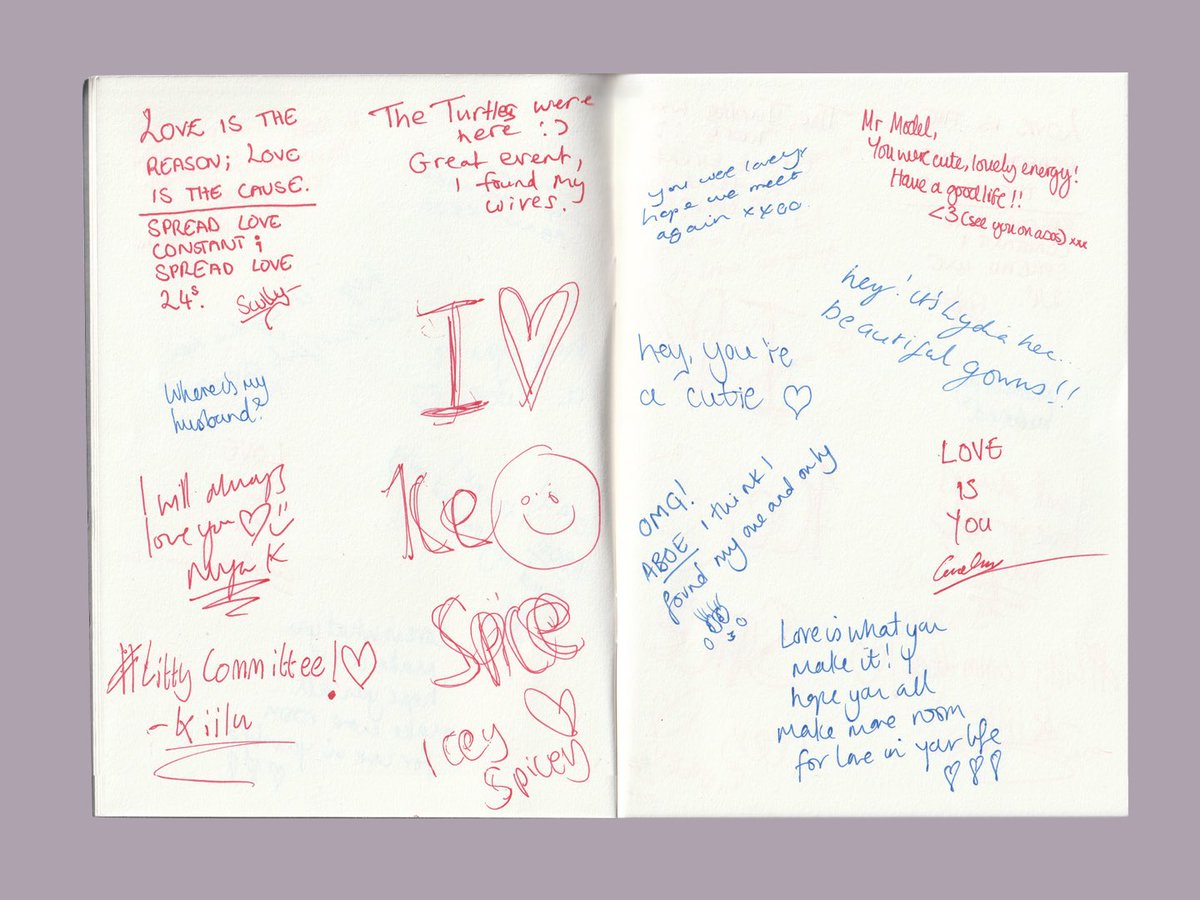 LOVE IS THE
REASON; LOVE
IS THE CAUSE.
SPREAD LOVE
CONSTANT;
SPREAD LOVE
24s.
The Turtles were
here :)
Great event,
I found my
wives.
Where's my
husband?
I ♡
I will always
love you ♡
Mya K
Ice
Spice
#Litty Committee! ♡
- Kiilu
Icey ♡
Spicey
you were lovely
hope we meet
again xxoo
Mr Model,
You were cute, lovely energy!
Have a good life!!
<3 (see you on asos) xxx
hey! it's Lydia
beautiful gowns!!
hey, you're
a cutie ♡
OMG!
ABOE I think I
found my one and only
LOVE
IS
YOU
Love is what you
make it! I
hope you all
make more room
for love in your life
♡♡♡